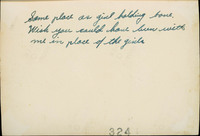 Same place as girl holding bone.
Wish you could have been with
me in place of the girls.
324